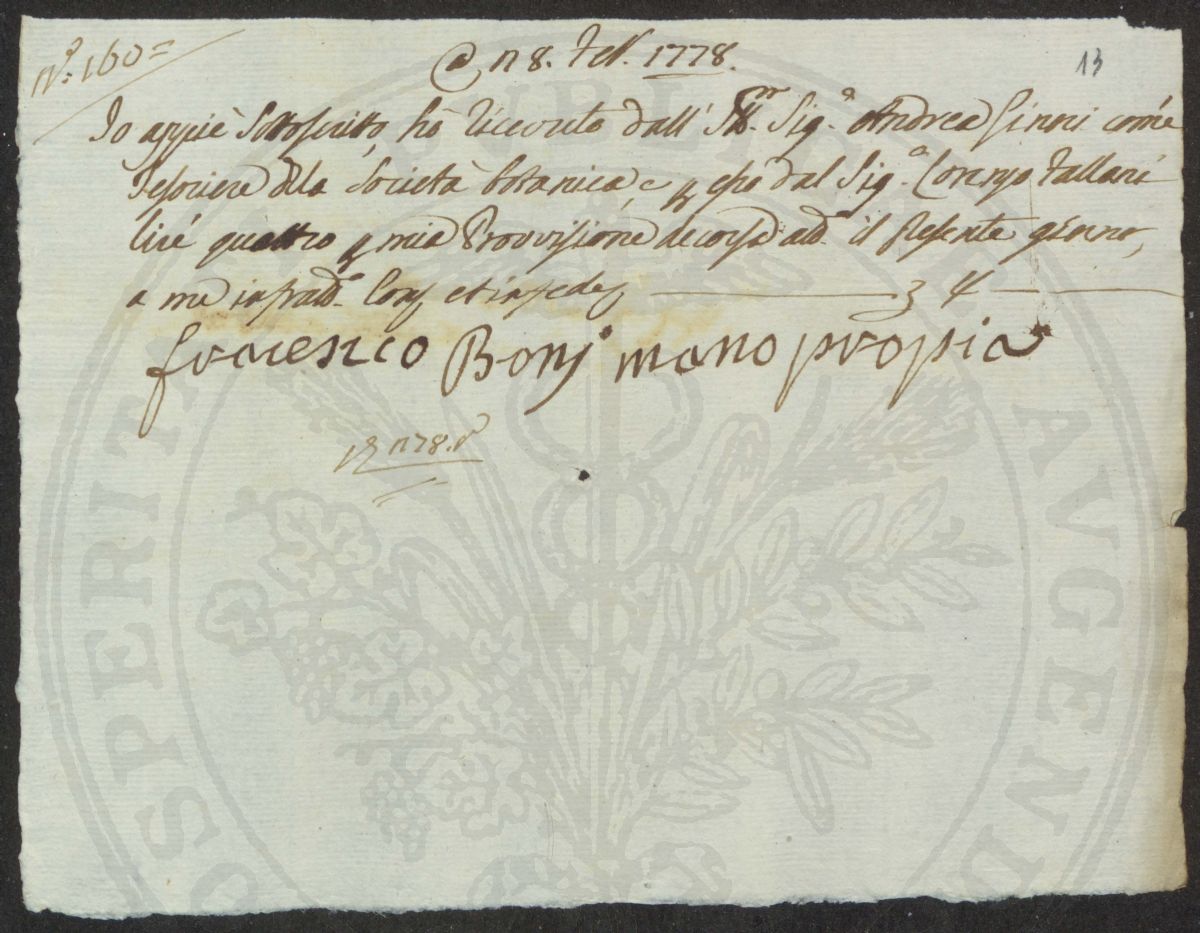 N.° 160=
13
@ n 8. Feb. 1778.
Io appiè Sottoscritto, hò Ricevuto dall' Ill.mo Sig.e Andrea Ginori comé
Tesoriere dela Società botanica, e p esso dal Sig.e Lorenzo Fallani
liré quattro p mia Provvisione decorsa a td.o il presente giorno,
a me infratt.o Con et in fede
4
francesco Bonj mano propia
1778.
PROSPERITATI PUBLICAE AVGENDAE